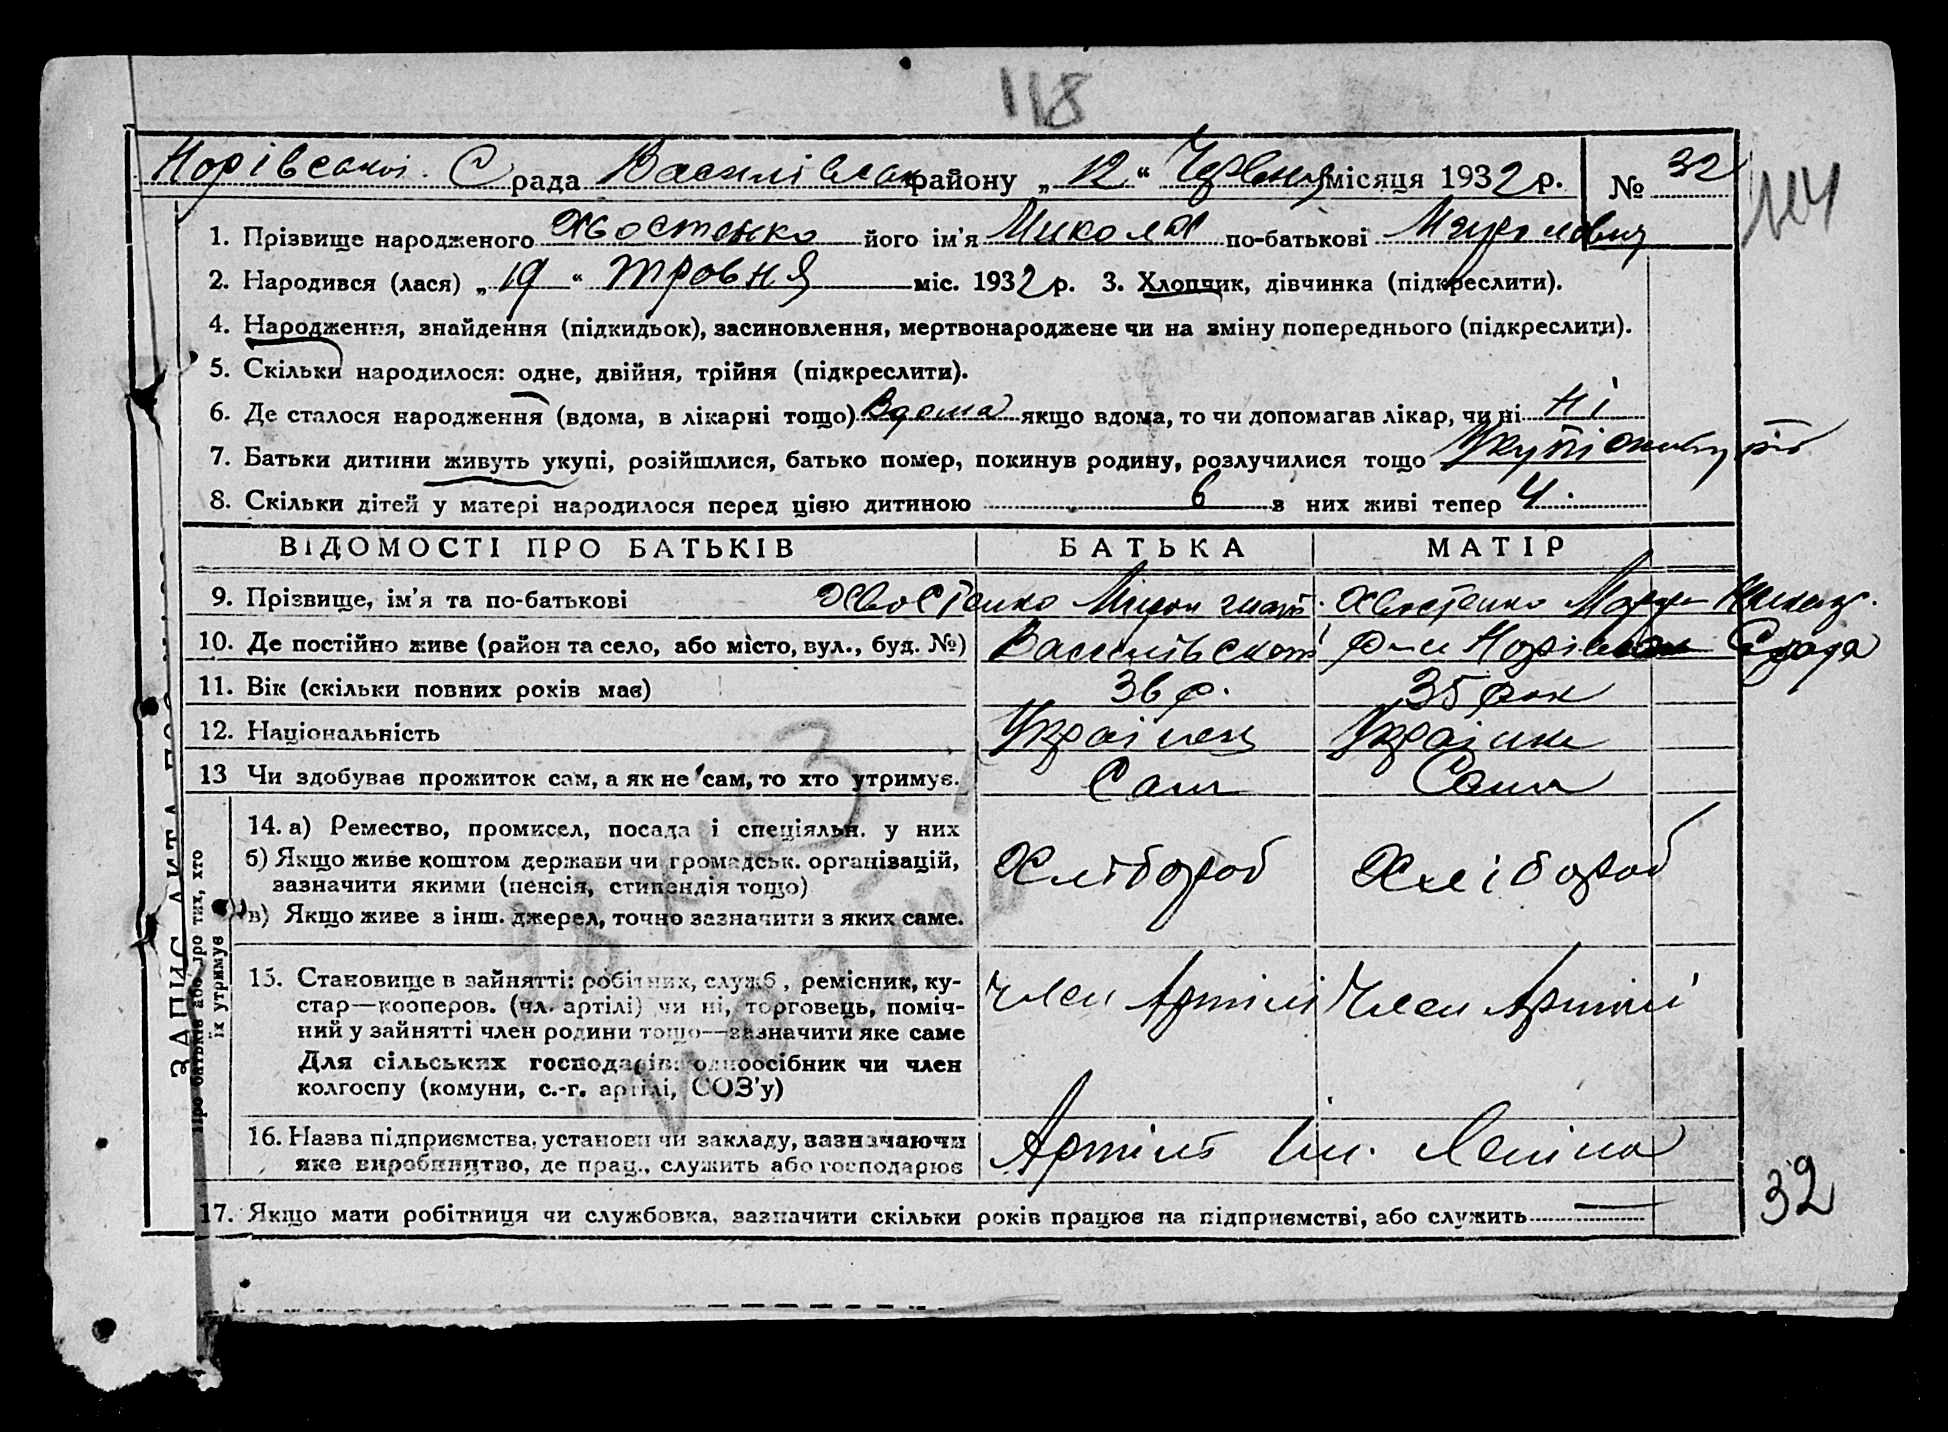 118
Норівської С рада Василівськ району „ 12 “ Червня місяця 1932 р. № 32
1. Прізвище народженого Хвостенко його ім'я Микола по-батькові
2. Народився (лася) „ 19 “ травня міс. 1932 р. 3. Хлопчик, дівчинка (підкреслити).
4. Народження, знайдення (підкидьок), засиновлення, мертвонароджене чи на зміну попереднього (підкреслити).
5. Скільки народилося: одне, двійня, трійня (підкреслити).
6. Де сталося народження (вдома, в лікарні тощо) Вдома якщо вдома, то чи допомагав лікар, чи ні Ні
7. Батьки дитини живуть укупі, розійшлися, батько помер, покинув родину, розлучилися тощо
8. Скільки дітей у матері народилося перед цією дитиною 6 з них живі тепер 4.
ВІДОМОСТІ ПРО БАТЬКІВ БАТЬКА МАТІР
9. Прізвище, ім'я та по-батькові Хвостенко Хвостенко
10. Де постійно живе (район та село, або місто, вул., буд. №) Василівськ р-н Норівськ С рада
11. Вік (скільки повних років має) 36 р. 35 рок
12. Національність Українец Українка
13 Чи здобуває прожиток сам, а як не сам, то хто утримує. Сам Сама
14. а) Ремество, промисел, посада і спеціяльн. у них
б) Якщо живе коштом держави чи громадськ. організацій,
зазначити якими (пенсія, стипендія тощо) Хлібороб Хлібороб
в) Якщо живе з інш. джерел, точно зазначити з яких саме.
15. Становище в зайнятті: робітник, служб., ремісник, ку-
стар—кооперов. (чл. артілі) чи ні, торговець, поміч- Член Артілі Член Артілі
ний у зайнятті член родини тощо—зазначити яке саме
Для сільських господарів: одноосібник чи член
колгоспу (комуни, с.-г. артілі, СОЗ'у)
16. Назва підприємства, установи чи закладу, зазначаючи Артіль Ім. Леніна
яке виробництво, де прац., служить або господарює
17. Якщо мати робітниця чи службовка, зазначити скільки років працює на підприємстві, або служить —
32